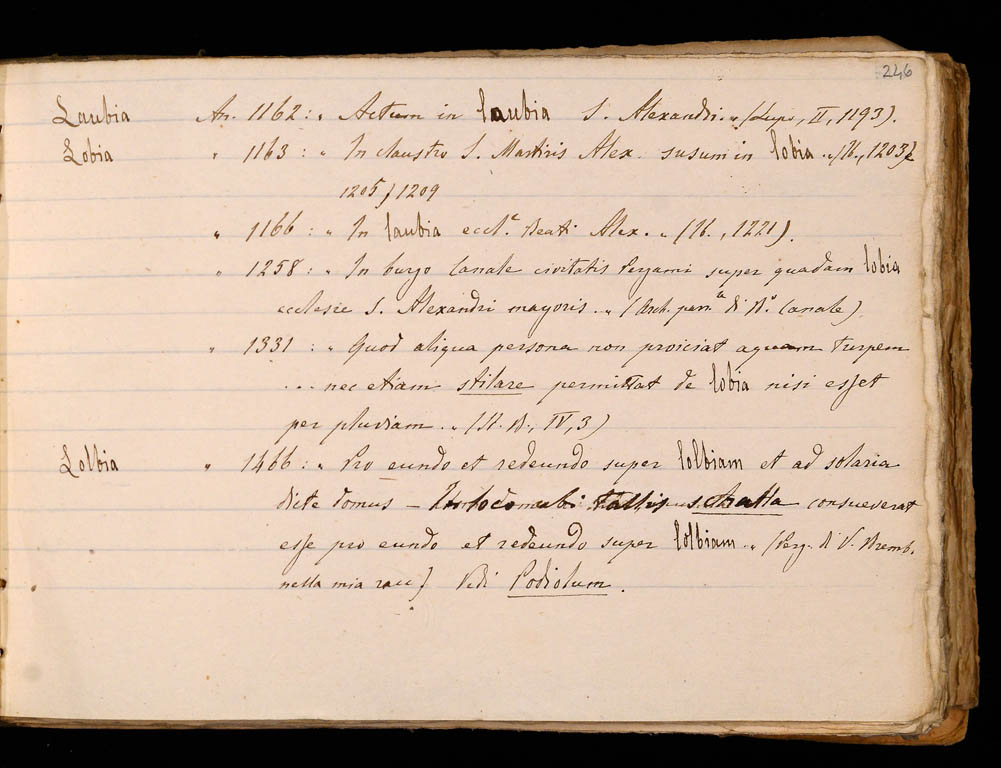 246
Laubia An. 1162: „ Actum in laubia S. Alexandri. „ (Lupo, II, 1193).
Lobia „ 1163 : „ In claustro S. Martiris Alex. susum in lobia „ (Ib., 1203 e
1205) 1209
„ 1166 : „ In laubia eccl.e Beati Alex. „ (Ib., 1221).
„ 1258 : „ In burgo Canale civitatis Pergami super quadam lobia
ecclesie S. Alexandri mayoris. „ (Arch. parr.a di B.o Canale)
„ 1331 : „ Quod aliqua persona non proiciat aquam turpem
... nec etiam stilare permittat de lobia nisi esset
per pluviam. „ (St. B., IV, 3)
Lolbia „ 1466 : „ Pro eundo et redeundo super lolbiam et ad solaria
dicte domus – ubi schalla consueverat
esse pro eundo et redeundo super lolbiam. „ (Perg. di V. Bremb.
nella mia racc) Vedi Podiolum.